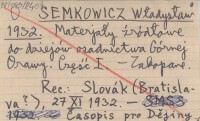 SEMKOWICZ Władysław
1932. Materjały źródłowe
do dziejów osadnictwa Górnej
Orawy. Część I – Zakopane.
Rec.: Slovák (Bratisla-
va?), 27 XI 1932. –
Časopis pro Dějiny